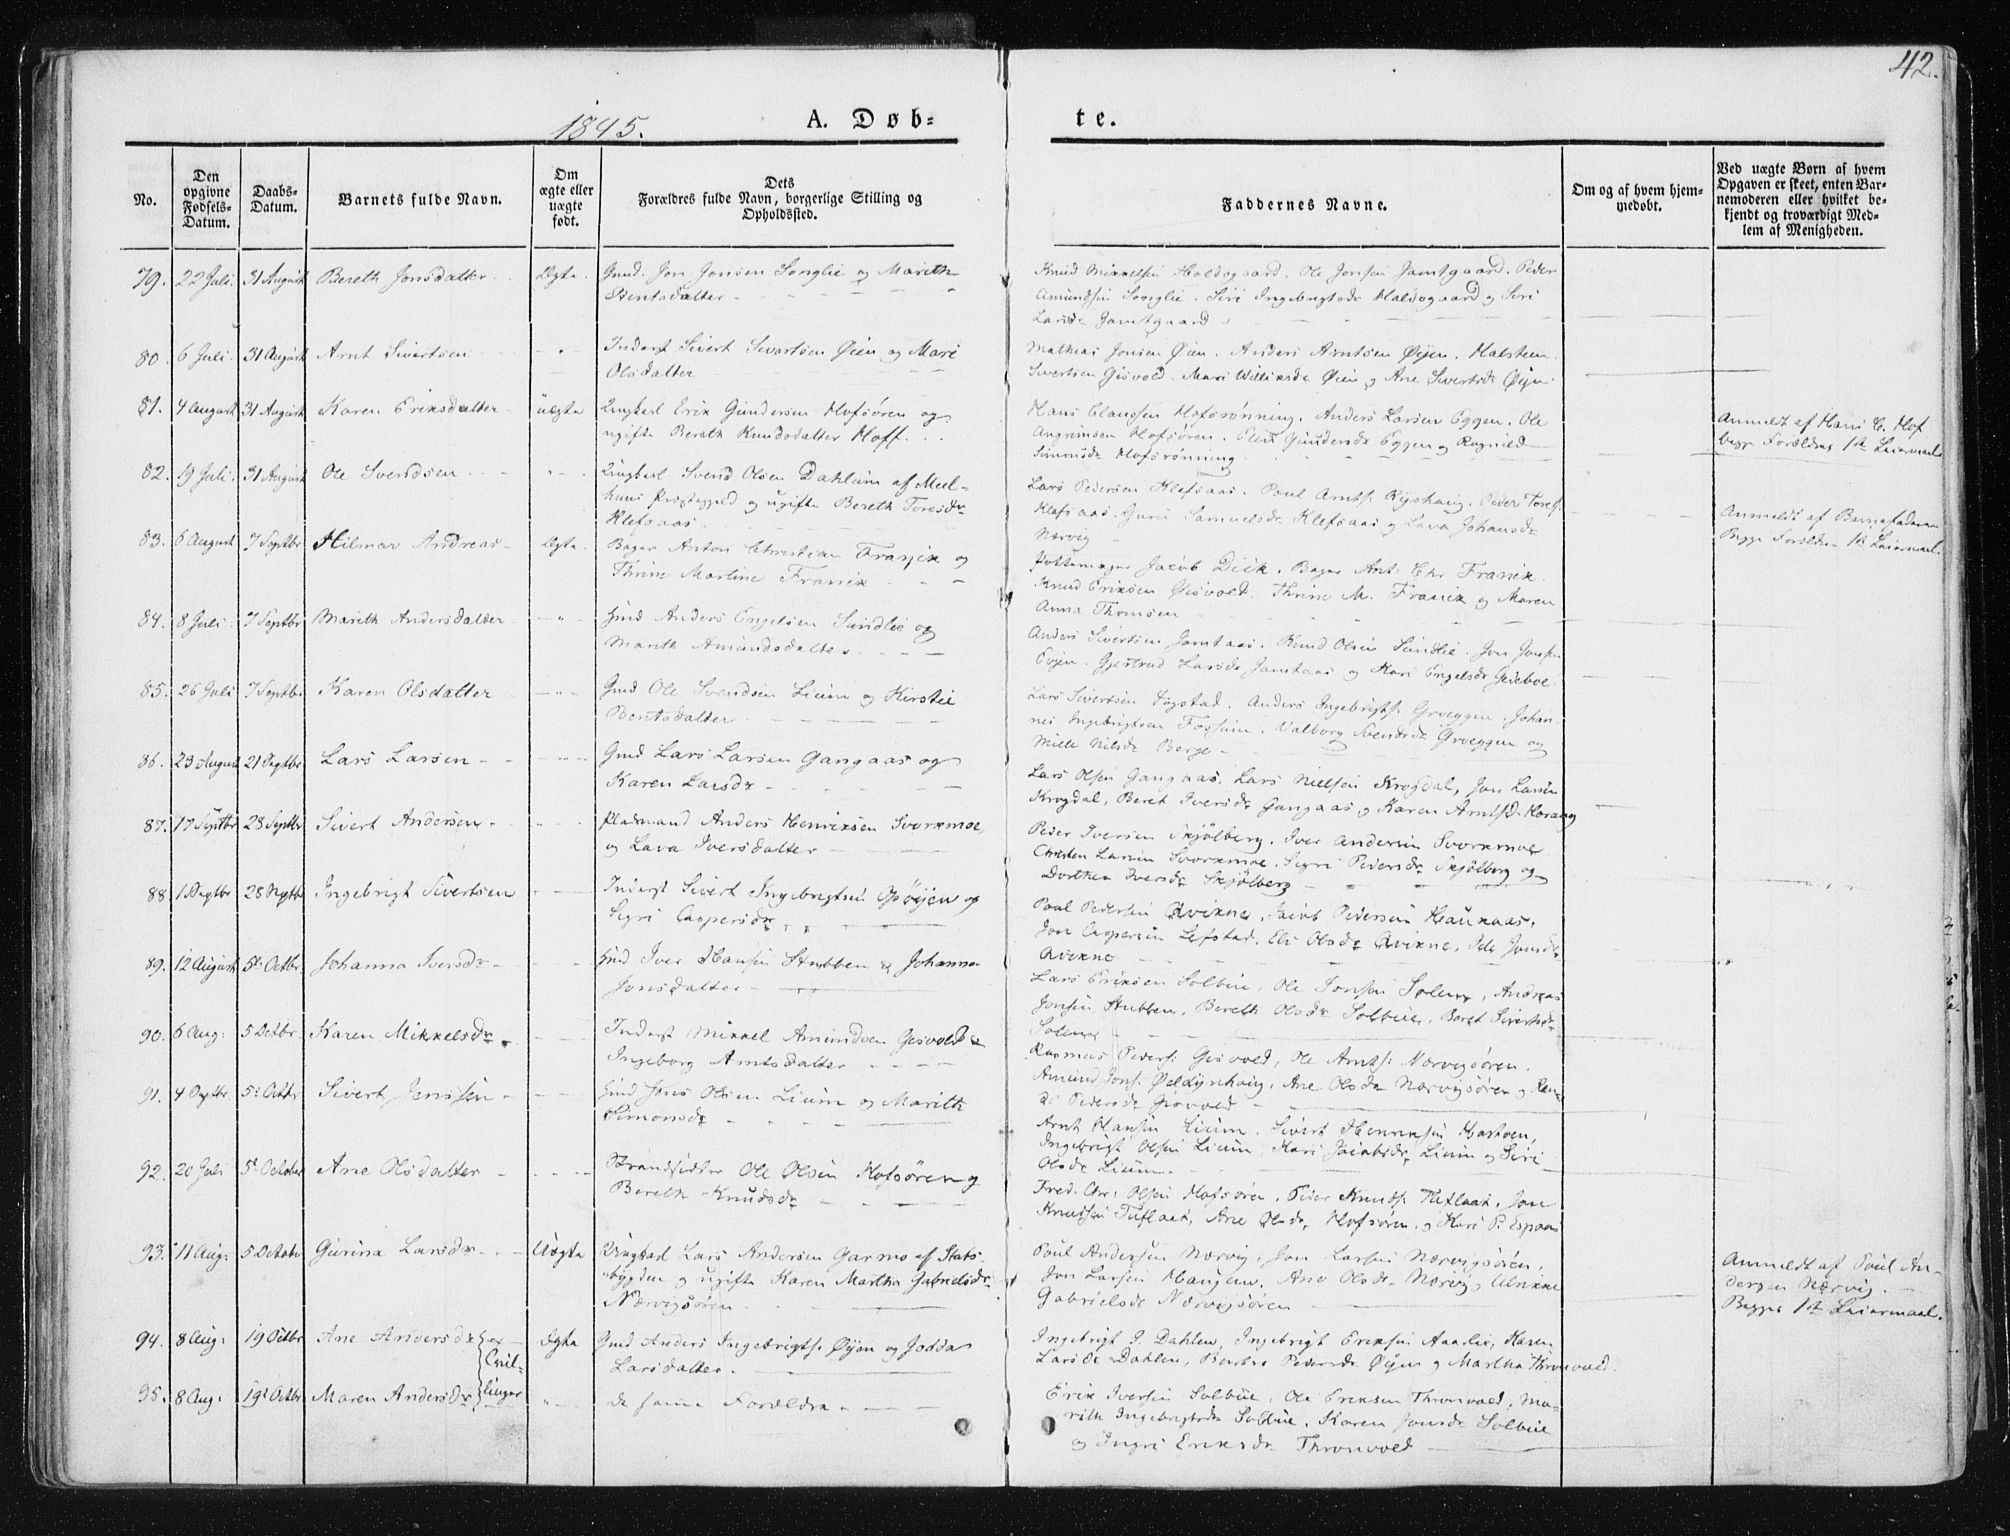 42.
1845.
A. Døb=
te.
No.
Den opgivne Fødsels-Datum.
Daabs-Datum.
Barnets fulde Navn.
Om ægte eller uægte født.
Dets Forældres fulde Navn, borgerlige Stilling og Opholdssted.
Faddernes Navne.
Om og af hvem hjemmedøbt.
Ved uægte Børn af hvem Opgaven er skeet, enten Barnemoderen eller hvilket bekjendt og troværdigt Medlem af Menigheden.
79. 22 Juli. 31 August Bereth Jonsdatter Ægte Gmd. Jon Jonsen Songlie og Marith
Bentsdatter
Knud Mikkelsen Haldogaard. Ole Jonsen Jamtgaard. Peder
Amundsen Songlie. Siri Ingebrigtsdr Haldogaard og Siri
Larsdr Jamtgaard
80. 6 Juli. 31 August Arnt Sivertsen Inderst Sivert Sivertsen Øien og Mari
Olsdatter
Mathias Jonsen Øien. Anders Arntsen Øyen. Halsteen
Sivertsen Gisvold. Mari Willixsdr Øien og Ane Sivertsdr Øyen
81. 4 August 31 August Karen Eriksdatter uægte Ungkarl Erik Gundersen Hofsøren og
ugifte Bereth Knudsdatter Hoff.
Hans Clausen Hofsrønning. Anders Larsen Eggen. Ole
Angrimsen Hofsøren. Elen Gundersdr Eggen og Ragnild
Simonsdr Hofsrønning
Anmeldt af Hans C. Hof
begge Forældres 1ste Leiermaal
82. 19 Juli. 31 August Ole Svendsen Ungkarl Svend Olsen Dahlum af Meel-
huus Præstegjeld og ugifte Bereth Toresdr
Klefsaas
Lars Pedersen Klefsaas. Poul Arnts. Ryshaug. Peder Tores.
Klefsaas. Guru Samuelsdr Klefsaas og Lava Johansdr
Nærvig
Anmeldt af Barnefaderen
Begge Forældres 1ste Leiermaal.
83. 6 August 7 Septbr Hilmar Andreas Ægte. Bager Anton Christian Franzik og
Thrine Martine Franzik
Pottemager Jacob Dick. Bager Ant. Chr Franzik.
Knud Eriksen Gisvold. Thrine M. Franzik og Maren
Anna Thomsen
84. 8 Juli 7 Septbr Marith Andersdatter Gmd Anders Engelsen Sundlie og
Marith Amundsdatter
Anders Sivertsen Jamtaas. Knud Olsen Sundlie. Jon Jonsen
Evjen. Gjertrud Larsdr Jamtaas og Kari Engelsdr
85. 26 Juli 7 Septbr Karen Olsdatter Gmd Ole Svendsen Lium og Kirstie
Bentsdatter
Lars Sivertsen Fogstad. Anders Ingebrigts. Groeggen. Johan-
nes Ingebrigtsen Fossum. Valborg Svendsdr Groeggen og
Mille Nilsdr Berge
86. 23 August 21 Septbr Lars Larsen Gmd Lars Larsen Gangaas og
Karen Larsdr
Lars Olsen Gangaas, Lars Nielsen Krogdal, Jon Larsen
Krogdal, Beret Iversdr Gangaas og Karen Arntsd. Korang
87. 17 Septbr 28 Septbr Sivert Andersen Pladsmand Anders Henriksen Svorkmoe
og Lava Iversdatter
Peder Iversen Skjølberg. Iver Andersen Svorkmoe.
Christen Larsen Svorkmoe. Sigri Pedersdr Skjølberg og
Dorthea Iversdr Skjølberg
88 1 Septbr 28 Septbr Ingebrigt Sivertsen Inderst Sivert Ingebrigtsen Opsøyen og
Sigri Caspersdr
Poul Pedersen Qvikne, Jacob Pedersen Haukaas,
Jon Caspersen Lefstad, Eli Olsdr Qvikne, Jonsdr
Qvikne
89. 12 August 5te Octbr Johanna Iversdr Gmd Iver Hansen Stubben & Johanna
Jonsdatter
Lars Eriksen Solbue, Ole Jonsen Solem, Andreas
Jonsen Stubben, Bereth Olsdr Solbue, Beret Sivertsdr
Solem
90. 6 Aug: 5 Octbr Karen Mikkelsdr Inderst Mikkel Amundsen Gisvold &
Ingeborg Arntsdatter
Rasmus Peders. Gisvold, Ole Arnts. Nærvigsøren.
Amund Jons. Øeldynhaug, Ane Olsdr Nærvigsøren og Ran-
di Pedersdr Gisvold
91. 4 Septbr 5te Octbr Sivert Jenssen Gmd Jens Olsen Lium og Marith
Simonsdr
Arnt Hansen Lium. Sivert Henriksen Hastven,
Ingebrigt Olsen Lium, Kari Jacobsdr Lium og Siri
Olsdr Lium
92. 20 Juli 5te October Ane Olsdatter Strandsidder Ole Olsen Hofsøren og
Bereth Knudsdr
Fred. Chr: Olsen Hofsøren, Peder Knuds. Tuflaat, Jon
Knudsen Tuflaat, Ane Olsdr Hofsøren, og Kari P. Espaas
93. 11 Aug: 5 October Gurina Larsdr Uægte Ungkarl Lars Andersen Garmo af Stads-
bygden og ugifte Karen Martha Gabrielsdr.
Nærvigsøren
Poul Andersen Nærvig, Jon Larsen Nærvigsøren,
Jon Larsen Haugen, Ane Olsdr Nærvig, Ulrikke
Gabrielsdr Nærvigsøren
Anmeldt af Poul An-
dersen Nærvig.
Begges 1ste Leiermaal.
94. 8 Aug: 19 Octbr Ane Andersdr Ægte Gmd Anders Ingebrigts. Øyen og Jodda
Larsdatter
er
Tvil-
linger
Ingebrigt J. Dahlen, Ingebrigt Eriksen Aaerlie, Karen
Larsdr Dahlen, Berbro Pedersdr Øyen og Martha Thronvold.
95. 8 Aug: 19de Octbr. Maren Andersdr de samme Forældre
Erik Iversen Solbue, Ole Eriksen Thronvold, Ma-
rith Ingebrigtsdr Solbue, Karen Jonsdr Solbue
og Ingri Eriksdr Thronvold